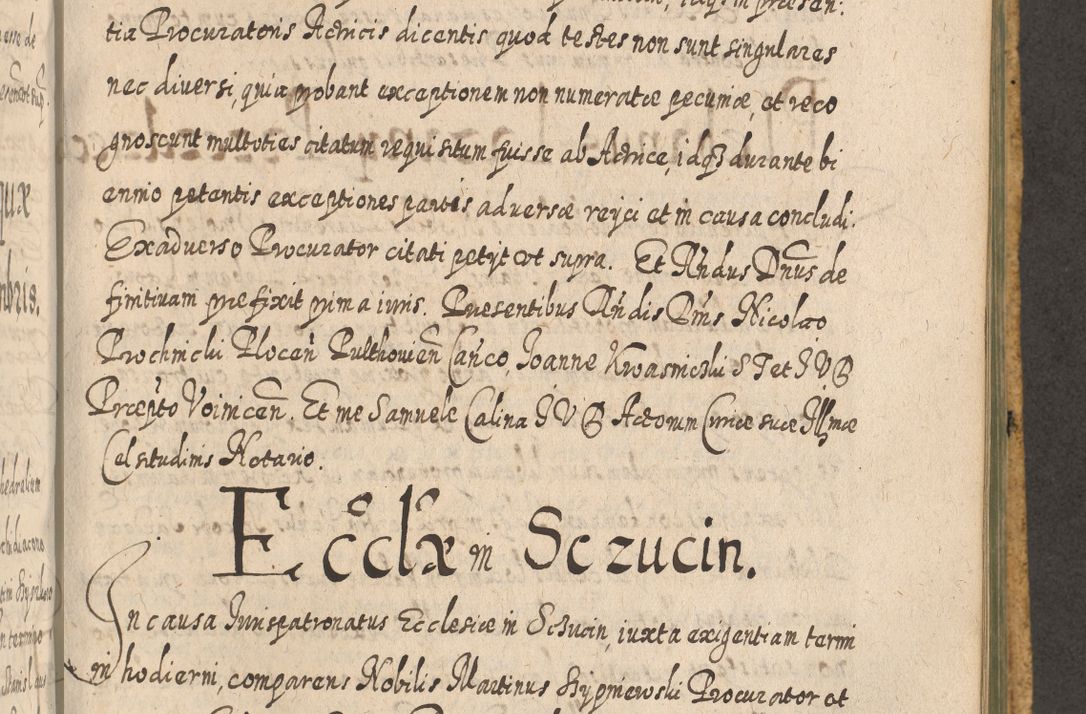 tia Procuratoris Actricis dicentis quod testes non sunt singulares
nec diversi, quia probant exceptionem non numeratæ pecuniæ, et reco
gnoscunt multoties citatum requisitum fuisse ab Actrice, idqꝫ durante bi
ennio petentis exceptiones partis adversæ reijci et in causa concludi.
Exadverso Procurator citati petijt vt supra. Et Rñdus Dñus de
finitivam præfixit prima iuris. Præsentibus Rñdis Dñis Nicolao
Prochnicki Plocen̄ Pulthovien̄ Can̄co, Joanne Kwasnicki S T et J V D
Præpto Voinicen̄. Et me Samuele Calina J V D Actorum Curiæ suæ Illmæ
Celsitudinis Notario.
Ecclæ in Sczucin.
In causa Jurispatronatus Ecclesiæ in Sczucin, iuxta exigentiam termi
ni hodierni, comparens Nobilis Martinus Rypniewski Procurator et